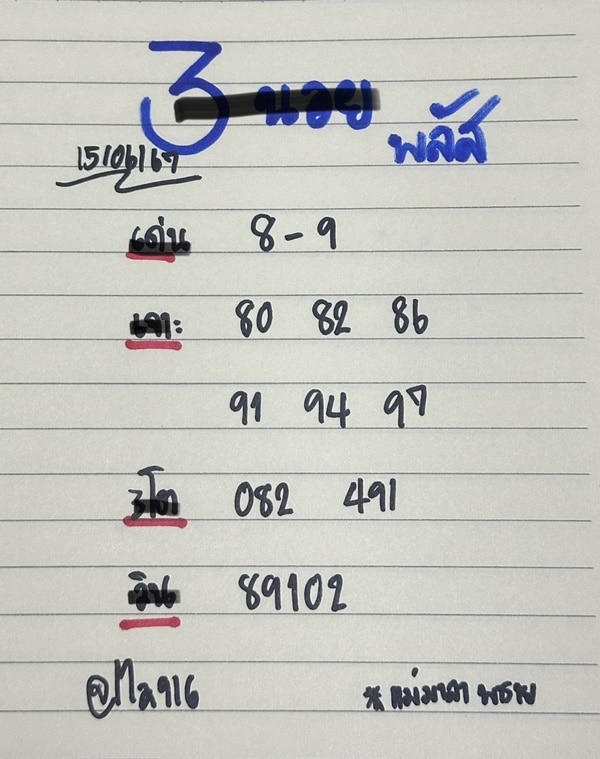 3 นอย
พลัส
15/06/67
เด่น 8-9
เจาะ 80 82 86
91 94 97
3โต 082 491
วิน 89102
916
* แม่มาลา พรวย